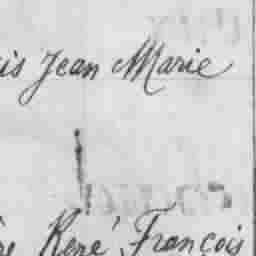 is Jean Marie
re René, François